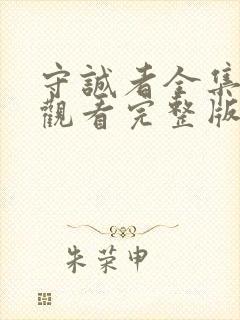 守誠者全集
觀看完整版
朱荣申